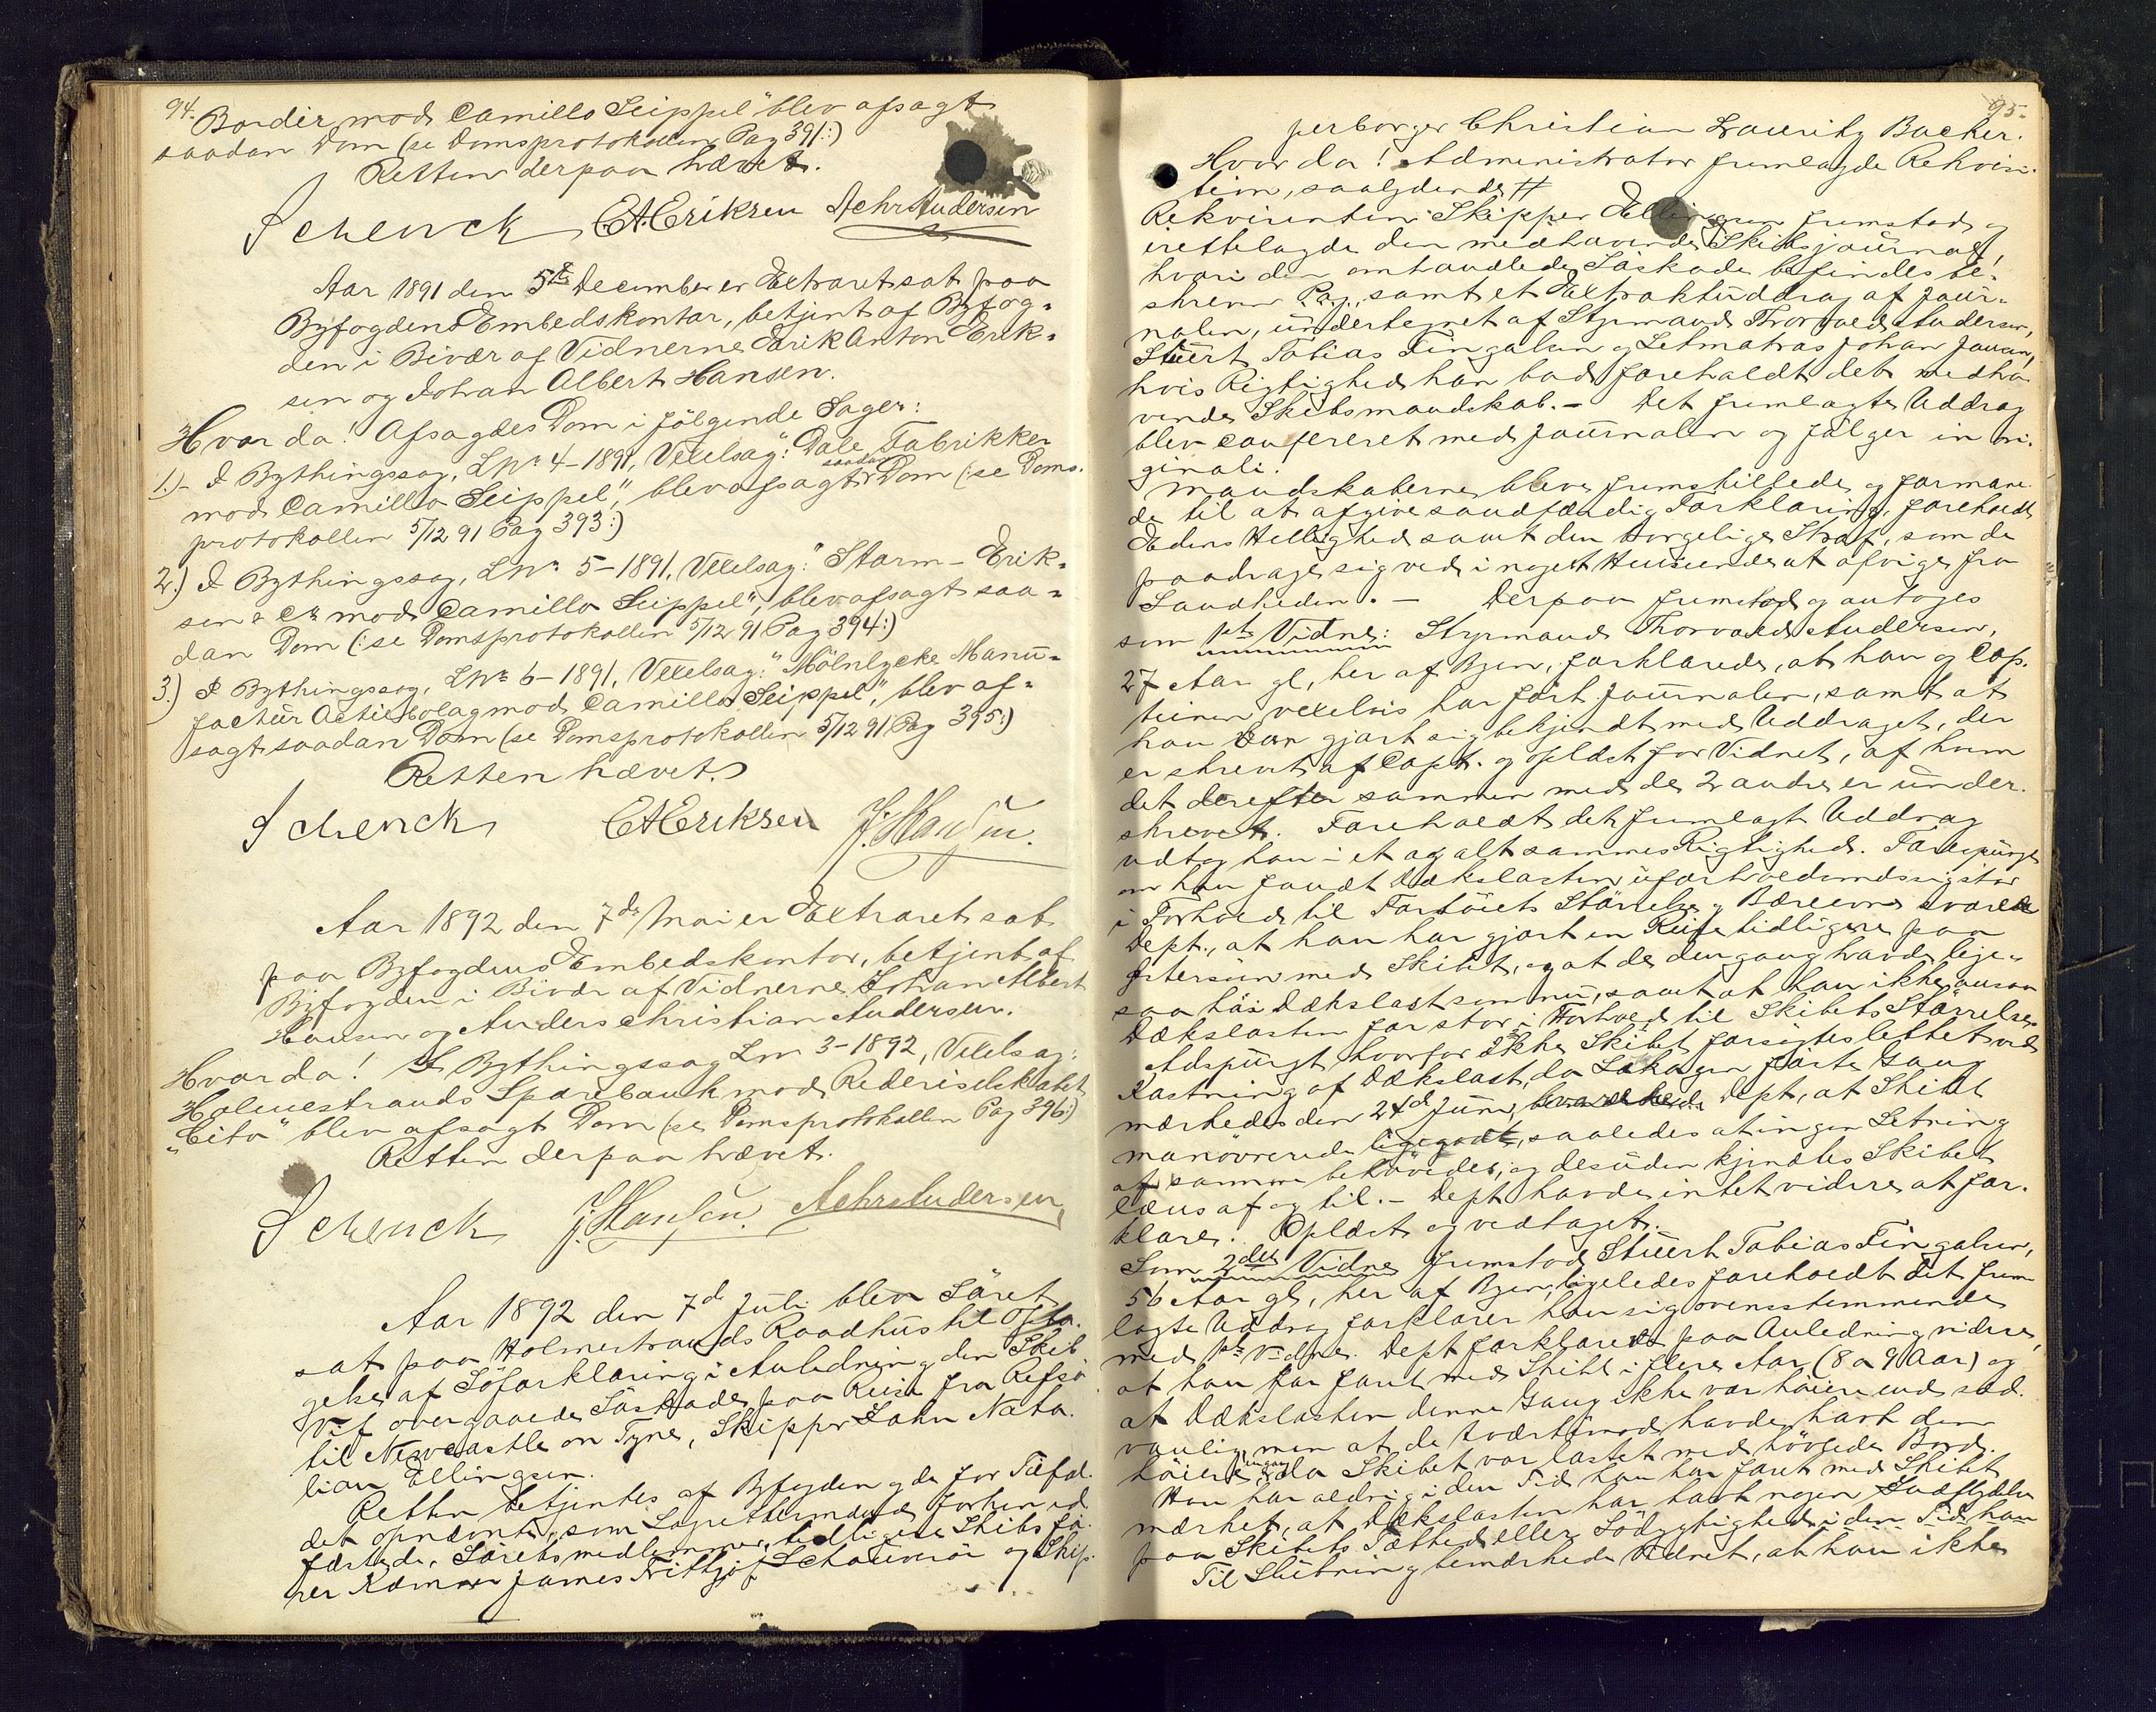 94.
Bordir mod Camillo Seippel" blev afsagt
saadan Dom (se Domsprotokollen Pag 391:)
Retten derpaa hævet.
Schenck EAEriksen AchrAndersen
Aar 1891 den 5te December er Extraret sat paa
Byfogdens Embedskontor, betjent af Byfog-
den i Bivær af Vidnerne Erik Anton Erik-
sen og Johan Albert Hansen.
Hvor da! Afsagdes Dom i følgende Sager:
1.)- I Bythingssag, LNr 4-1891, Vexelsag: "Dale Fabrikker
mod Camillo Seippel", blev afsagt saadan Dom (:se Doms-
protokollen 5/12 91 Pag 393:)
2.) I Bythingssag, LNr 5-1891, Vexelsag: "Storm-Erik-
sen & Co mod Camillo Seippel", blev afsagt saa-
dan Dom (:se Domsprotokollen 5/12 91 Pag 394:)
3.) I Bythingssag, LNr 6-1891, Vexelsag: "Mölnlycke Manu-
factur Actiebolag mod Camillo Seippel", blev af-
sagt saadan Dom (se Domsprotokollen 5/12 91 Pag 395:)
Retten hævet.
Schenck EAEriksen J.Hansen.
Aar 1892 den 7de Mai er Extraret sat
paa Byfogdens Embedskontor, betjent af
Byfogden i Bivær af Vidnerne Johan Albert
Hansen og Anders Christian Andersen.
Hvor da! I Bythingssag Lnr 3-1892, Vexelsag:
Holmestrands Sparebank mod Rederiselskabet
"Cito" blev afsagt Dom (se Domsprotokollen Pag 396:)
Retten derpaa hævet.
Schenck J.Hansen. AchrAndersen,
Aar 1892 den 7de Juli blev Søret
sat paa Holmestrands Raadhus til Opta-
gelse af Søforklaring i Anledning den Skib
overgaaede Søskade paa Reise fra Refsö
til Newcastle on Tyne, Skipper John Nata-
lian Ellingsen.
Retten betjentes af Byfogden og de for Tilfæl-
det opnævnte, som Lagrettemænd forhen ed-
fæstede, Søretsmedlemmer, tidligere Skibsfö-
rer Kæmner James Frithjof Schauverör og Skip-
95.
perborger Christian Lauritz Backer.
Hvor da! Administrator fremlagde Rekvisi-
tion, saalydende #
Rekvirenten Skipper Ellingsen fremstod og
irettelagde den medhavende Skibsjournal,
hvori den omhandlede Søskade befindes be-
skreven Pag., samt et Extraktuddrag af Jour-
nalen, undertegnet af Styrmand Thorvald Andersen,
Stuert Tobias Fingalsen og Letmatros Johan Jansen,
hvis Rigtighed han bad foreholdt det medha-
vende Skibsmandskab.- Det fremlagte Uddrag
blev confereret med Journalen og følger in ori-
ginali.
Mandskaberne bleve fremstillede og formane-
de til at afgive sandfærdig Forklaring, foreholdt
Edens Hellighed samt den borgelige Straf, som de
paadrage sig ved i noget Henseende at afvige fra
Sandheden.- Derpaa fremstod og antoges
som 1ste Vidne: Styrmand Thorvald Andersen,
27 Aar gl, her af Byen, forklarede, at han og Cap-
teinen vexelvis har ført Journalen, samt at
han har gjort sig bekjendt med Uddraget, der
er skrevet af Capt. og oplæst for Vidnet, af hvem
det derefter sammen med de 2 andre er under-
skrevet. Foreholdt det fremlagt Uddrag
vedtog han i et og alt sammes Rigtighed. Forespurgt
om han fandt Dækslasten uforholdsmæssig stor
i Forhold til Fartöiets Störrelse og Bæreevne svarede
Dept., at han har gjort en Reise tidligere paa
Østersøen med Skibet, og at de dengang havde lige-
saa høi Dækslast som nu, samt at han ikke ansaa
Dækslasten for stor i Forhold til Skibets Størrelse.
Adspurgt hvorfor ikke Skibet forsøgtes lettet ved
Kastning af Dækslast, da Lækagen første Gang
mærkedes den 24de Juni, Dept, at Skibet
manövrerede ligegodt, saaledes at ingen Letning
af samme behøvedes, og desuden kjendtes Skibet
læns af og til.- Dept havde intet videre at for-
klare. Oplæst og vedtaget.
Som 2det Vidne fremstod Stuert Tobias Fingalsen,
56 Aar gl, her af Byen, ligeledes foreholdt det frem-
lagte Uddrag forklarer han sig overensstemmende
med 1ste Vidne. Dept forklarede paa Anledning videre,
at han har faret med Skibet i flere Aar (8 a 9 Aar) og
at Dækslasten denne Gang ikke var høiere end sæd-
vanlig, men at de tvertimod havde havt den
høiere engang, da Skibet var lastet med høvlede Bord.
Han har aldrig i den Tid han har faret med Skibet
mærket, at Dækslasten har havt nogen Indflydelse
paa Skibets Tæthed eller Södygtighed i den Tid han
Til Slutning bemærkede Vidnet, at han ikke